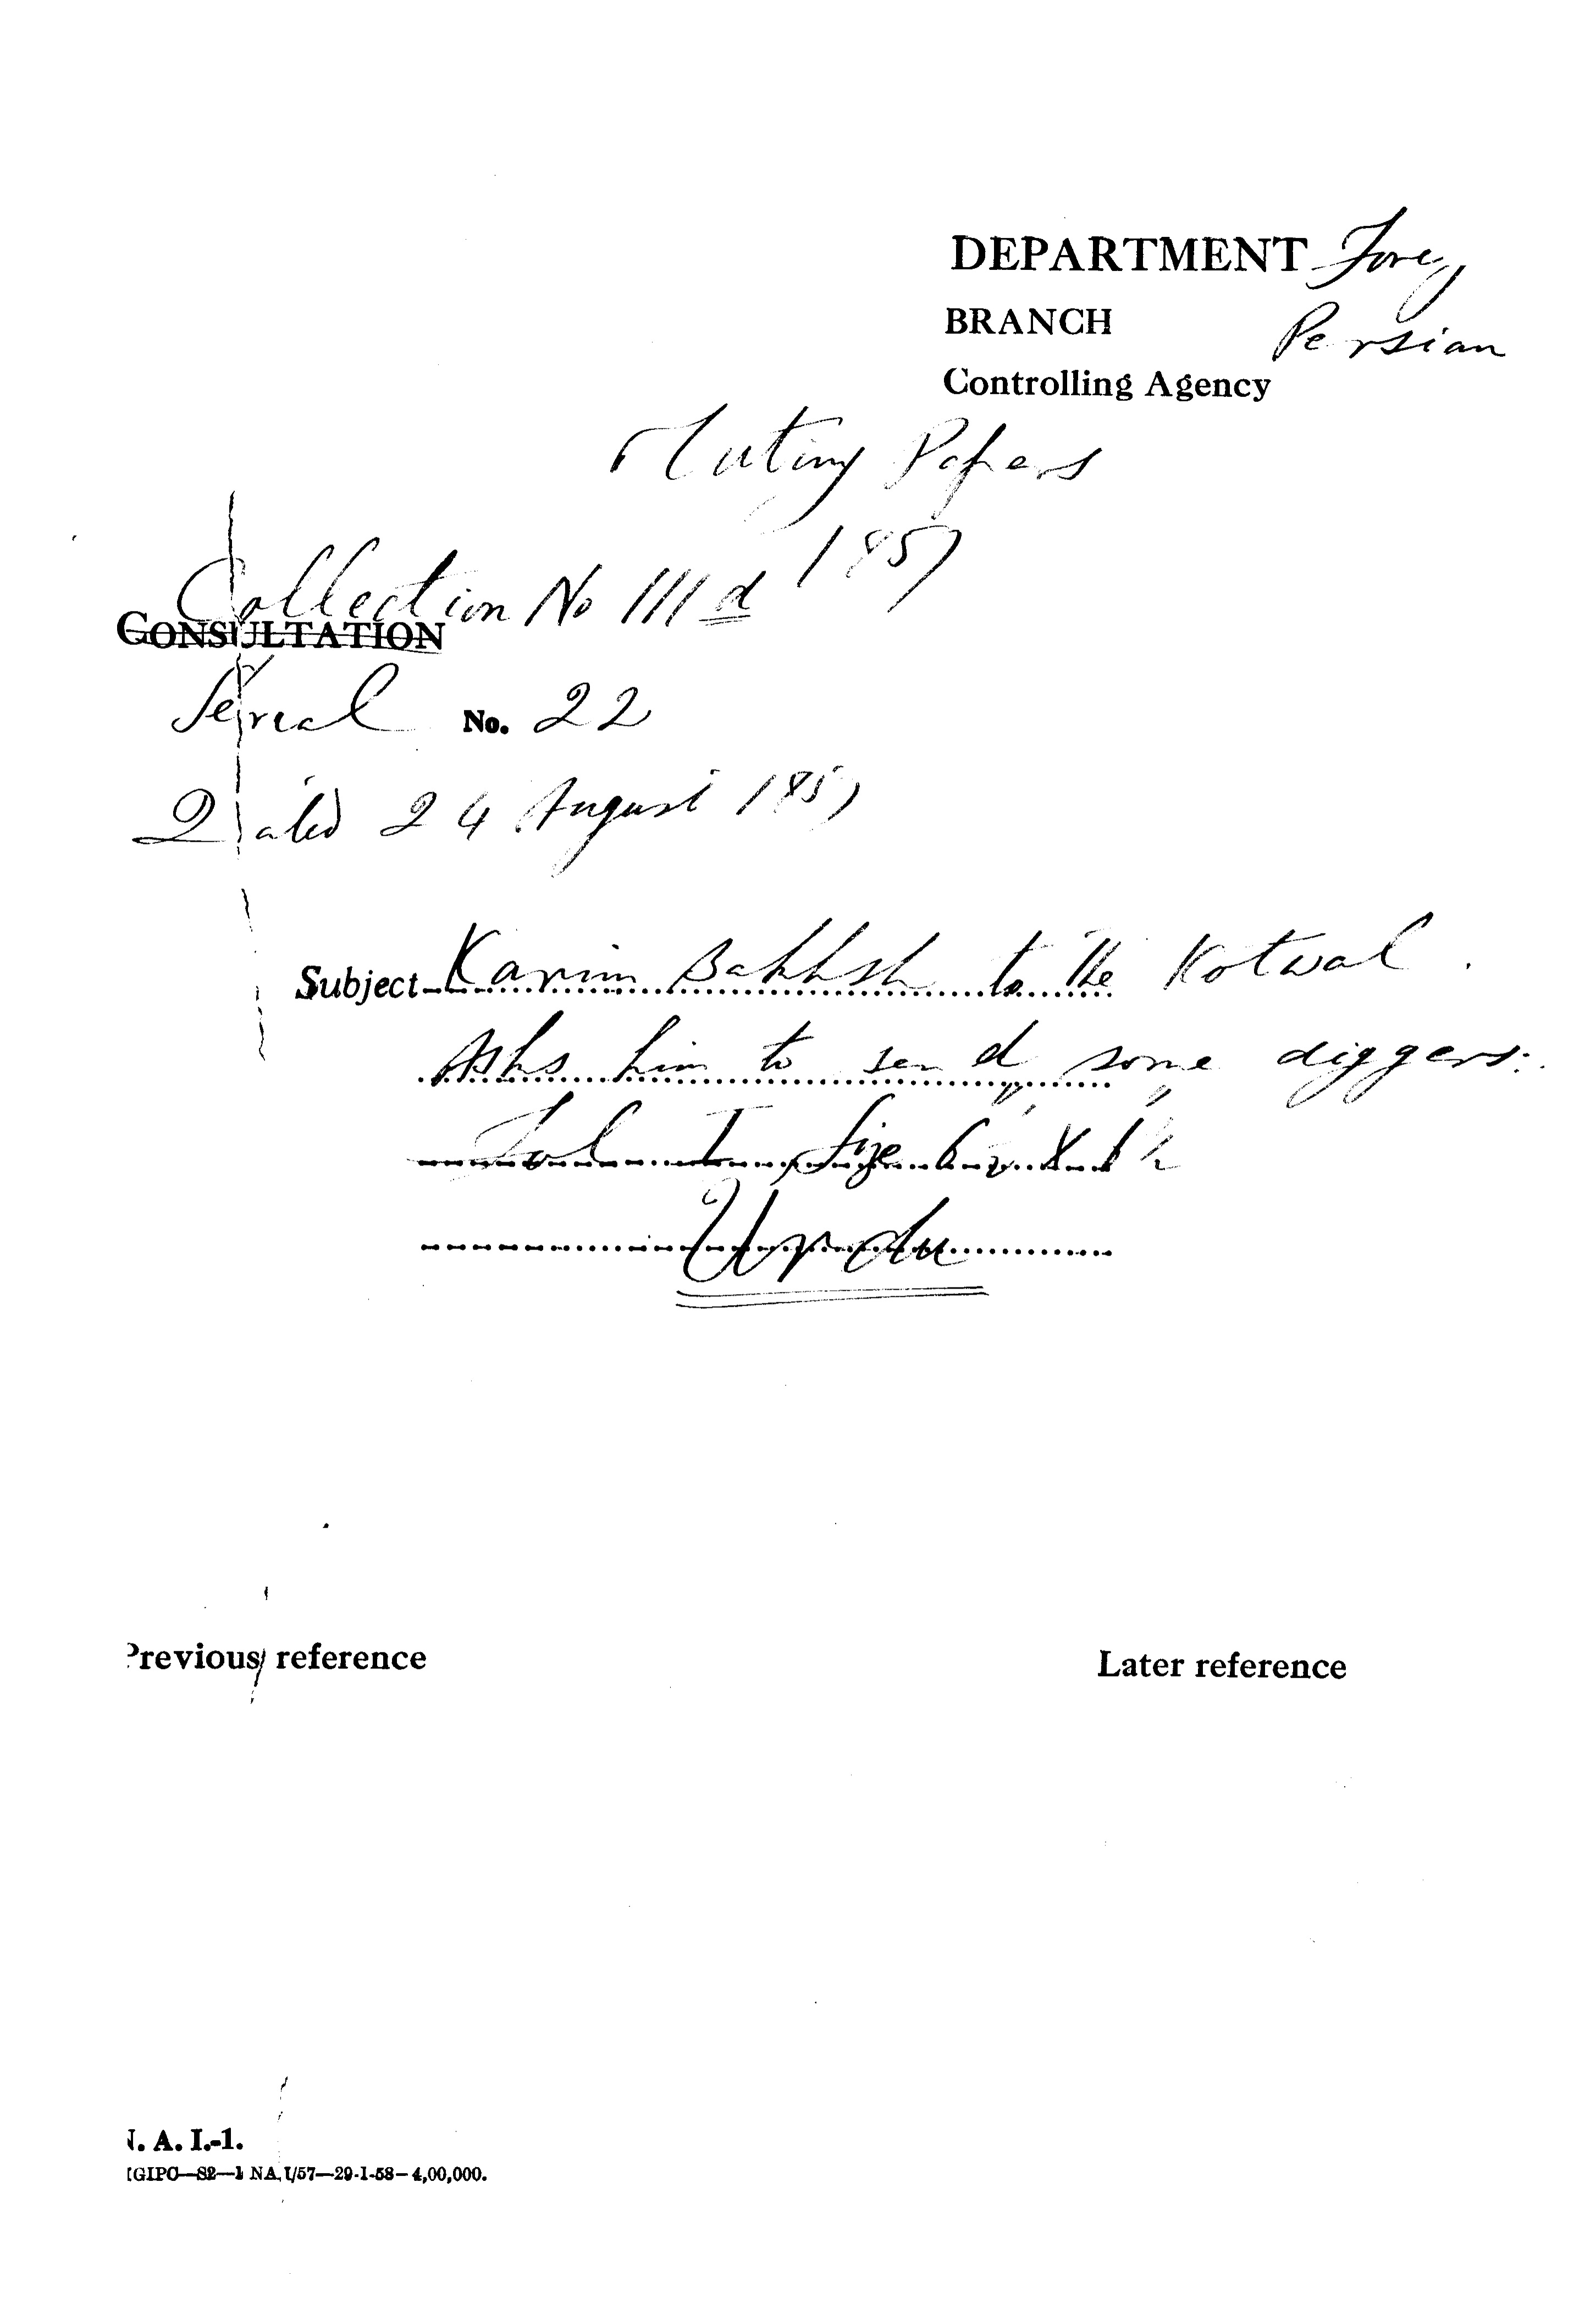 DEPARTMENT Foreg
BRANCH Persian
Controlling Agency
Mutiny Papers
1857
Collection No III d
CONSULTATION
Serial No. 22
Dated 24 August 1857
Subject Karim Bakhsh to the Kotwal.
Asks him to send some diggers.
Fol I, Size 6
Urdu
Previous reference
Later reference
N. A. I.-1.
GIPC—S2—1 NA.I/57—29-1-58—4,00,000.